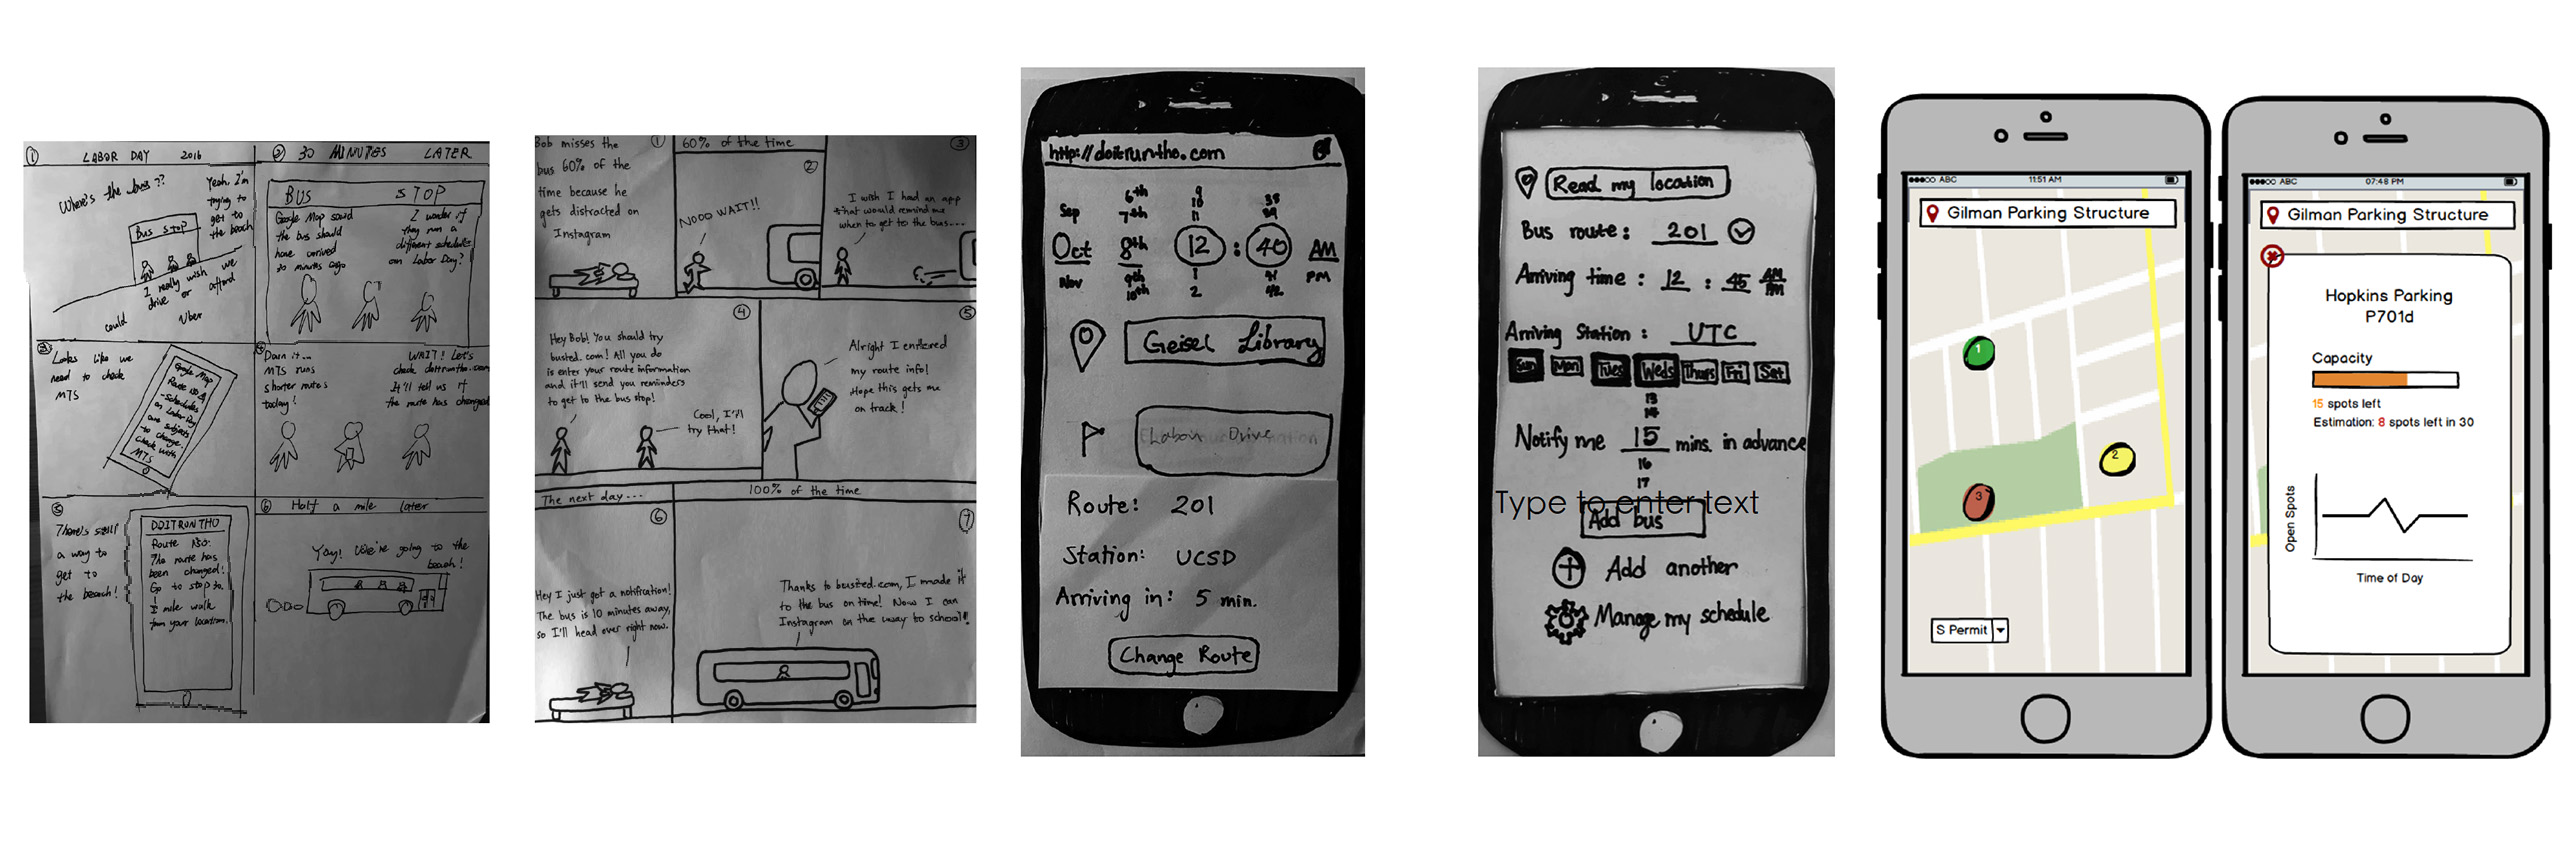 ①
LABOR DAY 2016
Where's the bus??
Yeah, I'm
trying to
get to
the beach
Bus STOP
I really wish we
could drive or afford
Uber
② 30 MINUTES LATER
BUS STOP
Google Map said
the bus should
have arrived
30 minutes ago
I wonder if
they run a
different schedule
on Labor Day?
③
Looks like we
need to check
MTS
Google Map
Route 150
-Schedules
on Labor Day
are subject
to change
Check with
MTS
④
Darn it...
MTS runs
shorter routes
today!
WAIT! Let's
check doitruntho.com
It'll tell us if
the route has changed
⑤
There's still
a way to
get to
the beach!
DOITRUNTHO
Route 150:
The route has
been changed!
Go to stop
1 mile walk
from your location.
⑥ Half a mile later
Yay! We're going to the
beach!
Bob misses the
bus 60% of the
time because he
gets distracted on
Instagram
①
60% of the time
②
NOOO WAIT!!
③
I wish I had an app
that would remind me
when to get to the bus....
④
Hey Bob! You should try
busted.com! All you do
is enter your route information
and it'll send you reminders
to get to the bus stop!
Cool, I'll
try that!
⑤
Alright I entered
my route info!
Hope this gets me
on track!
The next day...
⑥
Hey I just got a notification!
The bus is 10 minutes away,
so I'll head over right now.
100% of the time
⑦
Thanks to busted.com, I made it
to the bus on time! Now I can
Instagram on the way to school!
http://doitruntho.com
6th 9 38
Sep 7th 10 39
11
Oct 8th 12 : 40 AM
Nov 9th 1 41 PM
10th 2 42
Geisel Library
Labon Drive
Route: 201
Station: UCSD
Arriving in: 5 min.
Change Route
Read my location
Bus route: 201
Arriving time: 12 : 45 AM
PM
Arriving Station: UTC
Sun Mon Tues Weds Thurs Fri Sat
13
14
Notify me 15 mins. in advance
16
17
Type to enter text
Add bus
Add another
Manage my schedule
ABC 11:51 AM
Gilman Parking Structure
1
2
3
S Permit
ABC 07:48 PM
Gilman Parking Structure
Hopkins Parking
P701d
Capacity
15 spots left
Estimation: 8 spots left in 30
Open Spots
Time of Day